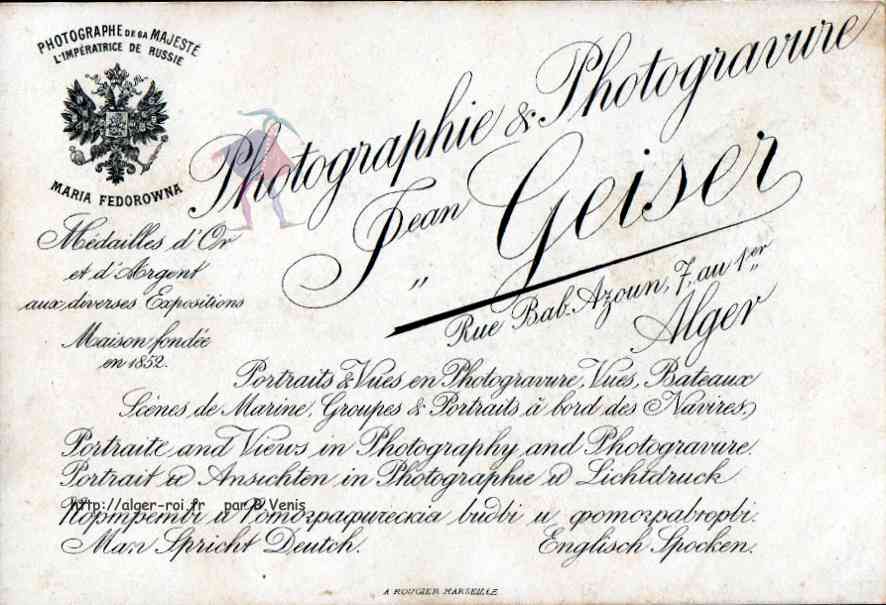 PHOTOGRAPHE DE SA MAJESTÉ
L'IMPÉRATRICE DE RUSSIE
MARIA FEDOROWNA
Médailles d'Or
et d'Argent
aux diverses Expositions
Maison fondée
en 1852.
Photographie & Photogravure
Jean Geiser
„
Rue Bab-Azoun, 7, au 1er
Alger
Portraits & Vues en Photogravure, Vues, Bateaux
Scènes de Marine, Groupes & Portraits à bord des Navires,
Portraite and Views in Photography and Photogravure.
Portrait u Ansichten in Photographie u Lichtdruck
http://alger-roi.fr par B.Venis
и Фотографическія види и фотогравюри.
Man Spricht Deutch. Englisch Spocken.
A ROUGIER MARSEILLE